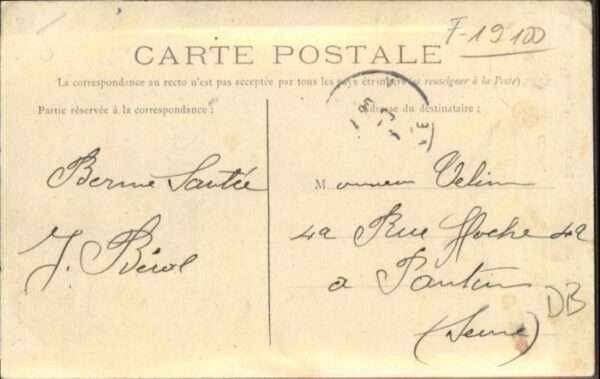 F-19100
CARTE POSTALE
La correspondance au recto n'est pas acceptée par tous les pays étrangers (se renseigner à la Poste)
Partie réservée à la correspondance :
Adresse du destinataire :
Bonne Santée
Monsieur Velin
42 Rue Hoche 42
a Pantin
(Seine)
DB